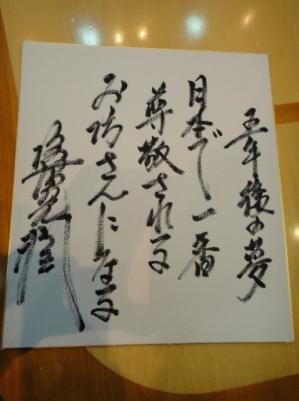 五年後の夢
日本で一番
尊敬される
お坊さんになる